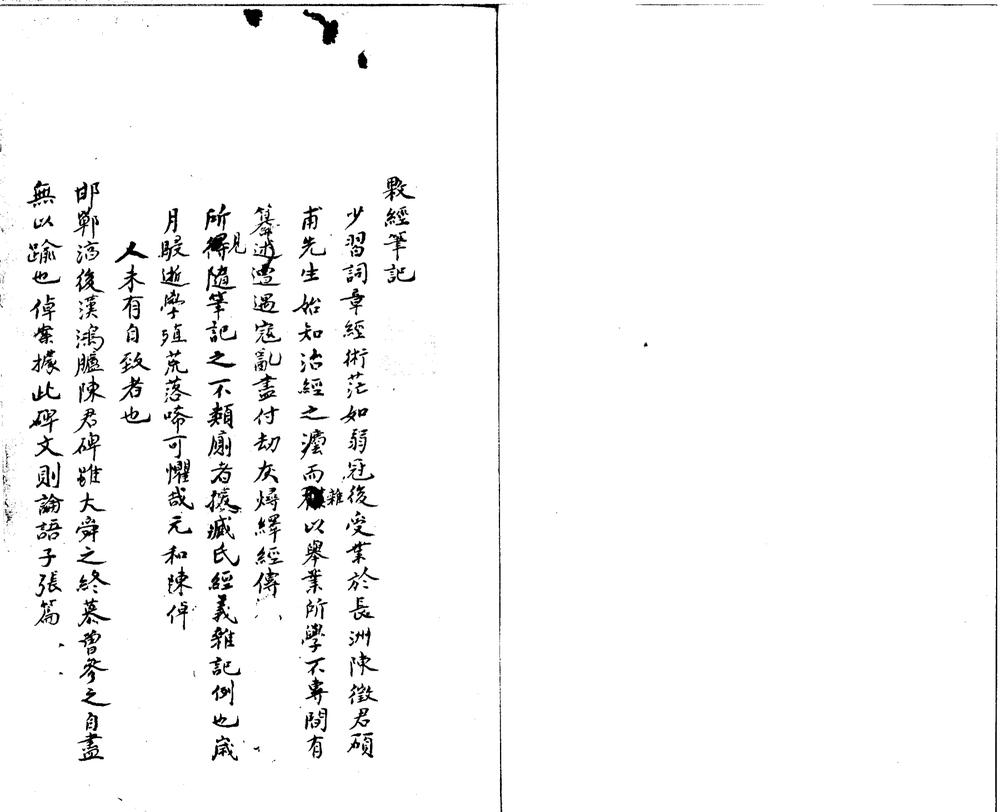 敤經筆記
少習詞章經術茫如弱冠後受業於長洲陳徵君碩
甫先生始知治經之塗而雜以舉業所學不專間有
篹述遭遇寇亂盡付劫灰燖繹經傳
所見隨筆記之不類廁者援臧氏經義雜記例也歲
月駸逝學殖荒落唏可懼哉元和陳倬
人未有自致者也
邯鄲淳後漢鴻臚陳君碑雖大舜之終慕曾參之自盡
無以踰也倬案據此碑文則論語子張篇